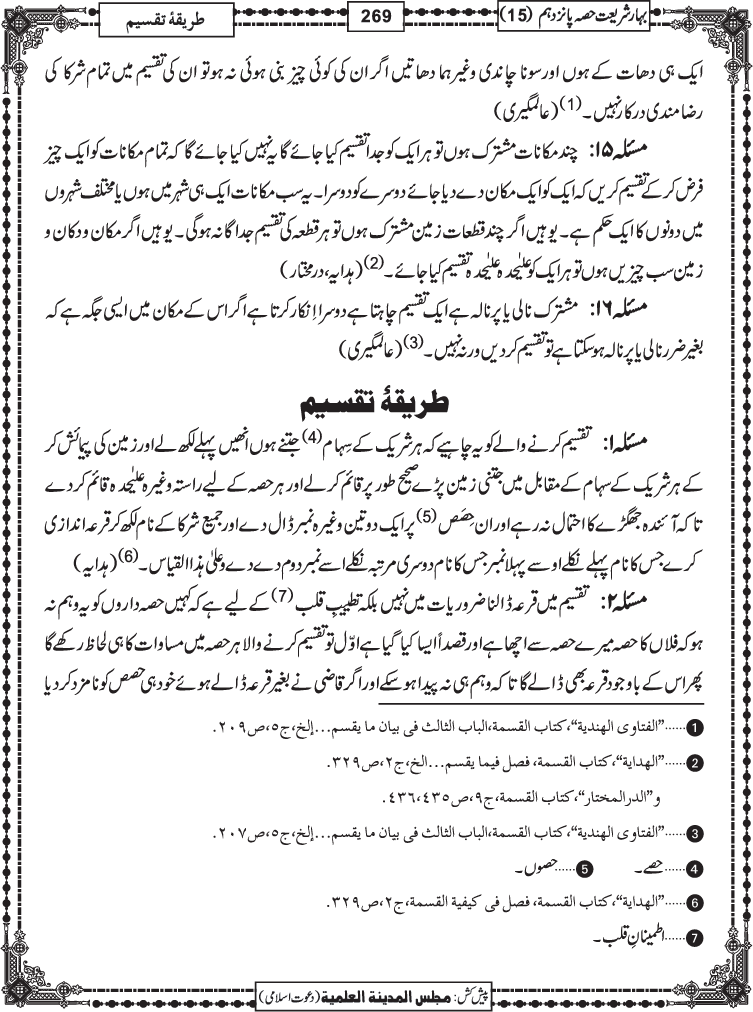 بہارِ شریعت حصہ پانزدہم (15)
269
طریقۂ تقسیم
ایک ہی دھات کے ہوں اور سونا چاندی وغیرہما دھاتیں اگر ان کی کوئی چیز بنی ہوئی نہ ہو تو ان کی تقسیم میں تمام شرکا کی
رضامندی درکار نہیں۔(1) (عالمگیری)
مسئلہ ۱۵: چند مکانات مشترک ہوں تو ہر ایک کو جدا تقسیم کیا جائے گا یہ نہیں کیا جائے گا کہ تمام مکانات کو ایک چیز
فرض کر کے تقسیم کریں کہ ایک کو ایک مکان دے دیا جائے دوسرے کو دوسرا۔ یہ سب مکانات ایک ہی شہر میں ہوں یا مختلف شہروں
میں دونوں کا ایک حکم ہے۔ یوہیں اگر چند قطعات زمین مشترک ہوں تو ہر قطعہ کی تقسیم جداگانہ ہوگی۔ یوہیں اگر مکان و دکان و
زمین سب چیزیں ہوں تو ہر ایک کو علیٰحدہ علیٰحدہ تقسیم کیا جائے۔(2) (ہدایہ، درمختار)
مسئلہ ۱۶: مشترک نالی یا پرنالہ ہے ایک تقسیم چاہتا ہے دوسرا اِنکار کرتا ہے اگر اس کے مکان میں ایسی جگہ ہے کہ
بغیر ضرر نالی یا پرنالہ ہو سکتا ہے تو تقسیم کر دیں ورنہ نہیں۔(3) (عالمگیری)
طریقۂ تقسیم
مسئلہ ۱: تقسیم کرنے والے کو یہ چاہیے کہ ہر شریک کے سِہام (4) جتنے ہوں انھیں پہلے لکھ لے اور زمین کی پیمائش کر
کے ہر شریک کے سہام کے مقابل میں جتنی زمین پڑے صحیح طور پر قائم کر لے اور ہر حصہ کے لیے راستہ وغیرہ علیٰحدہ قائم کر دے
تاکہ آئندہ جھگڑے کا احتمال نہ رہے اور ان حِصَص (5) پر ایک دو تین وغیرہ نمبر ڈال دے اور جمیع شرکا کے نام لکھ کر قرعہ اندازی
کرے جس کا نام پہلے نکلے اوسے پہلا نمبر جس کا نام دوسری مرتبہ نکلے اسے نمبر دوم دے دے وعلیٰ ہذا القیاس۔(6) (ہدایہ)
مسئلہ ۲: تقسیم میں قرعہ ڈالنا ضروریات میں نہیں بلکہ تطییبِ قلب (7) کے لیے ہے کہ کہیں حصہ داروں کو یہ وہم نہ
ہو کہ فلاں کا حصہ میرے حصہ سے اچھا ہے اور قصداً ایسا کیا گیا ہے اوّل تو تقسیم کرنے والا ہر حصہ میں مساوات کا ہی لحاظ رکھے گا
پھر اس کے باوجود قرعہ بھی ڈالے گا تاکہ وہم ہی نہ پیدا ہو سکے اور اگر قاضی نے بغیر قرعہ ڈالے ہوئے خود ہی حصص کو نامزد کر دیا
1......"الفتاوی الهندية"،کتاب القسمة،الباب الثالث فی بیان ما یقسم...إلخ،ج۵،ص۲۰۹.
2......"الهداية"،کتاب القسمة، فصل فیما یقسم...الخ،ج۲،ص۳۲۹.
و"الدرالمختار"،کتاب القسمة،ج۹،ص۴۳۵،۴۳۶.
3......"الفتاوی الهندية"،کتاب القسمة،الباب الثالث فی بیان ما یقسم...إلخ،ج۵،ص۲۰۷.
4......حصے۔ 5......حصوں۔
6......"الهداية"،کتاب القسمة، فصل فی کیفیة القسمة،ج۲،ص۳۲۹.
7......اطمینانِ قلب۔
پیش کش: مجلس المدينة العلمية (دعوت اسلامی)